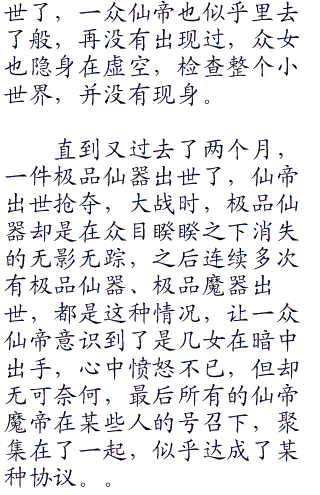 世了，一众仙帝也似乎里去
了般，再没有出现过，众女
也隐身在虚空，检查整个小
世界，并没有现身。
直到又过去了两个月，
一件极品仙器出世了，仙帝
出世抢夺，大战时，极品仙
器却是在众目睽睽之下消失
的无影无踪，之后连续多次
有极品仙器、极品魔器出
世，都是这种情况，让一众
仙帝意识到了是几女在暗中
出手，心中愤怒不已，但却
无可奈何，最后所有的仙帝
魔帝在某些人的号召下，聚
集在了一起，似乎达成了某
种协议。。